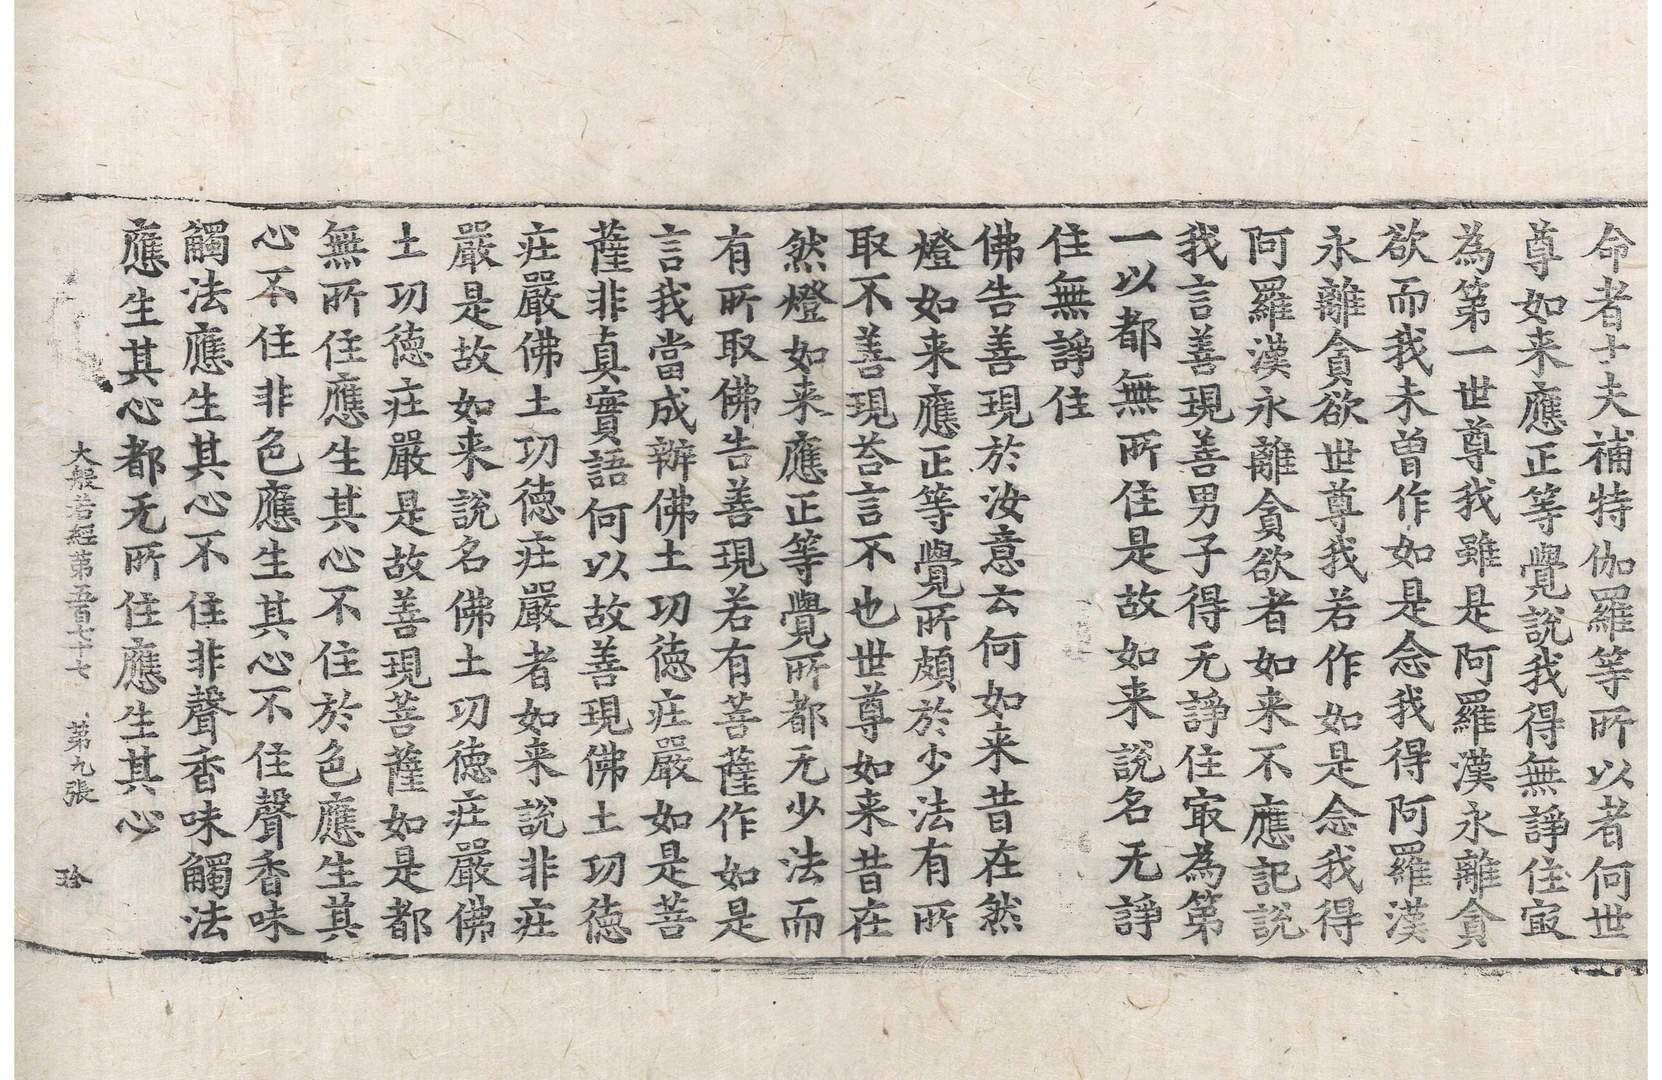 命者士夫補特伽羅等所以者何世
尊如来應正等覺說我得無諍住㝡
為第一世尊我雖是阿羅漢永離貪
欲而我未曽作如是念我得阿羅漢
永離貪欲世尊我若作如是念我得
阿羅漢永離貪欲者如来不應記說
我言善現善男子得无諍住㝡為第
一以都無所住是故如来說名无諍
住無諍住
佛告善現於汝意云何如来昔在然
燈如来應正等覺所頗於少法有所
取不善現荅言不也世尊如来昔在
然燈如来應正等覺所都无少法而
有所取佛告善現若有菩薩作如是
言我當成辦佛土功德庄嚴如是菩
薩非真實語何以故善現佛土功德
庄嚴佛土功德庄嚴者如来說非庄
嚴是故如来說名佛土功德庄嚴佛
土功德庄嚴是故善現菩薩如是都
無所住應生其心不住於色應生其
心不住非色應生其心不住聲香味
觸法應生其心不住非聲香味觸法
應生其心都无所住應生其心
大般若經第五百七十七 第九張 珍